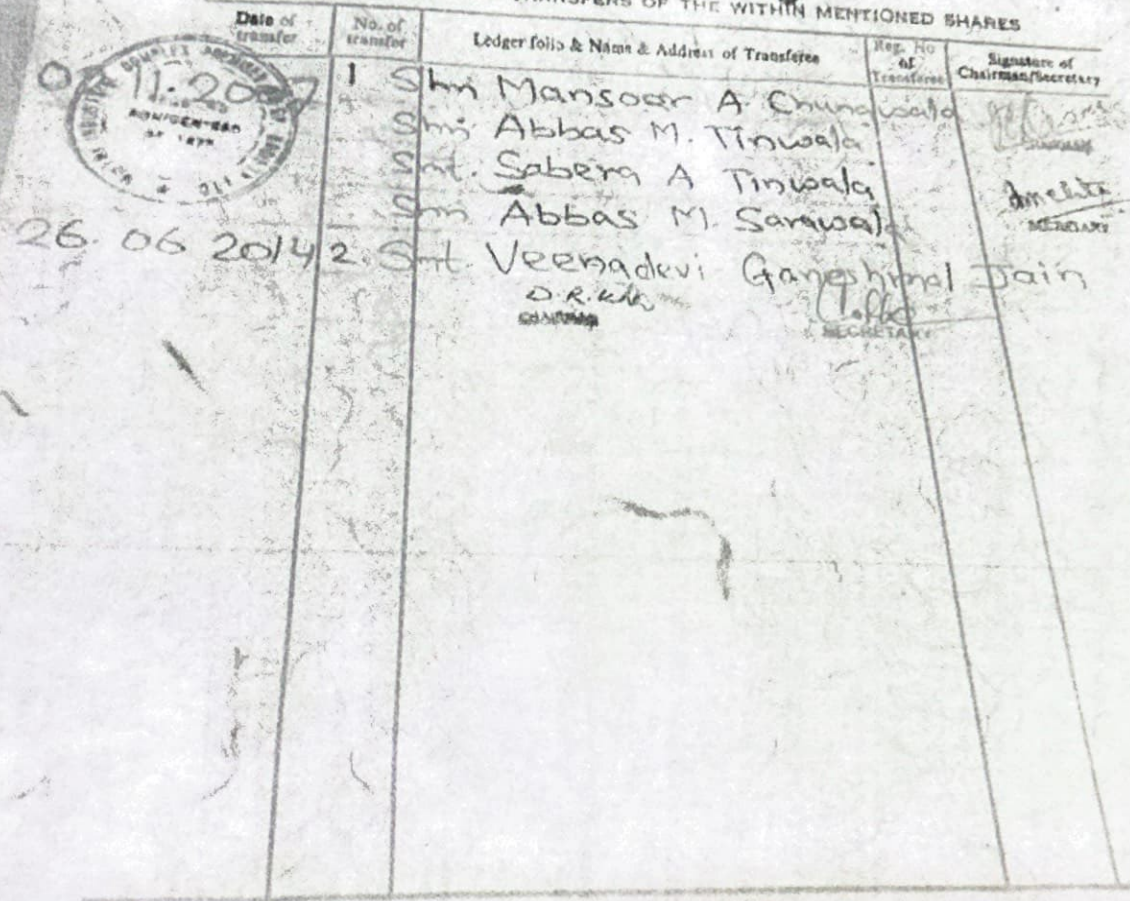 TRANSFERS OF THE WITHIN MENTIONED SHARES
Date of transfer No. of transfer Ledger folio & Name & Address of Transferee Reg. No of Transferee Signature of Chairman/Secretary
11.2007 1 Shri Mansoor A. Chunawala
Shri Abbas M. Tinwala
Smt. Sabera A Tinwala
Shri Abbas M. Sarawala
26.06 2014 2. Smt. Veenadevi Ganeshmal Jain
CHAIRMAN
SECRETARY